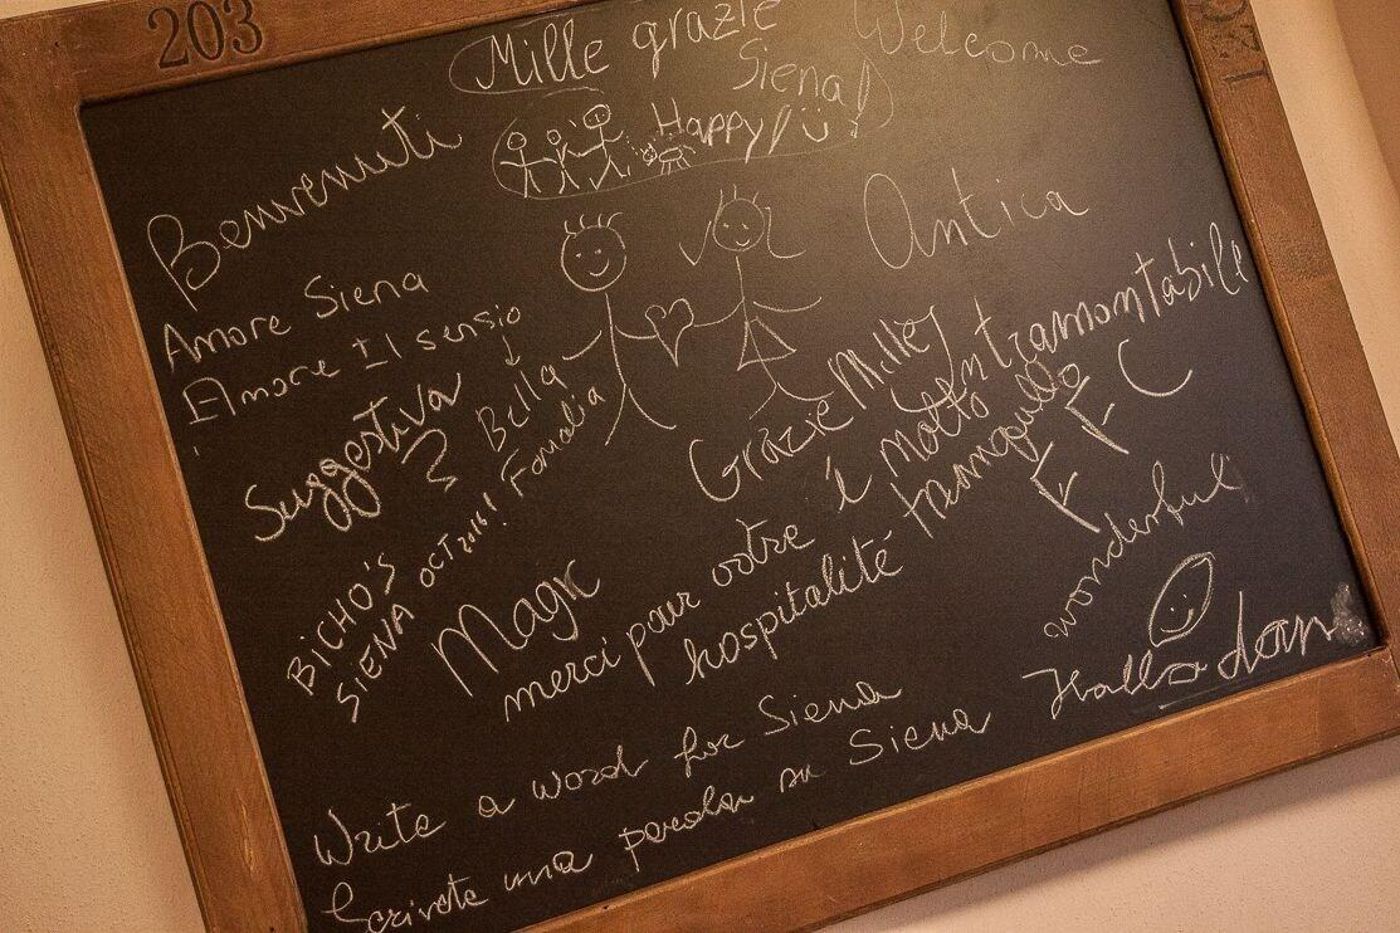 203
Mille grazie
Siena!
Welcome
Happy!
Benvenuti
Amore Siena
Amore Il sensio
Antica
Suggestiva
Bella
Famalia
Grazie Mille
Intramontabile
è molto
tranquillo
F F C
BICHO'S
SIENA OCT 2016!
Magic
merci pour votre
hospitalité
wonderful
Write a word for Siena
Scrivete una parola su Siena